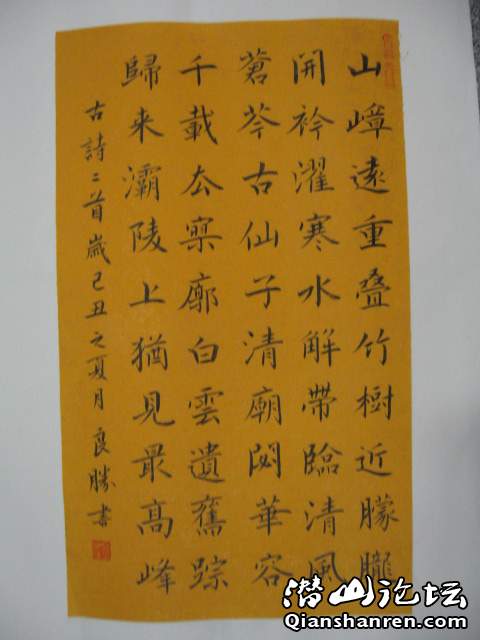 山嶂遠重叠竹樹近朦朧
開衿濯寒水解帶臨清風
蒼芩古仙子清廟閟華容
千載厺寥廓白雲遺舊踪
歸来灞陵上猶見最高峰
古詩二首歲己丑之夏月良勝書
潜山论坛
Qianshanren.com